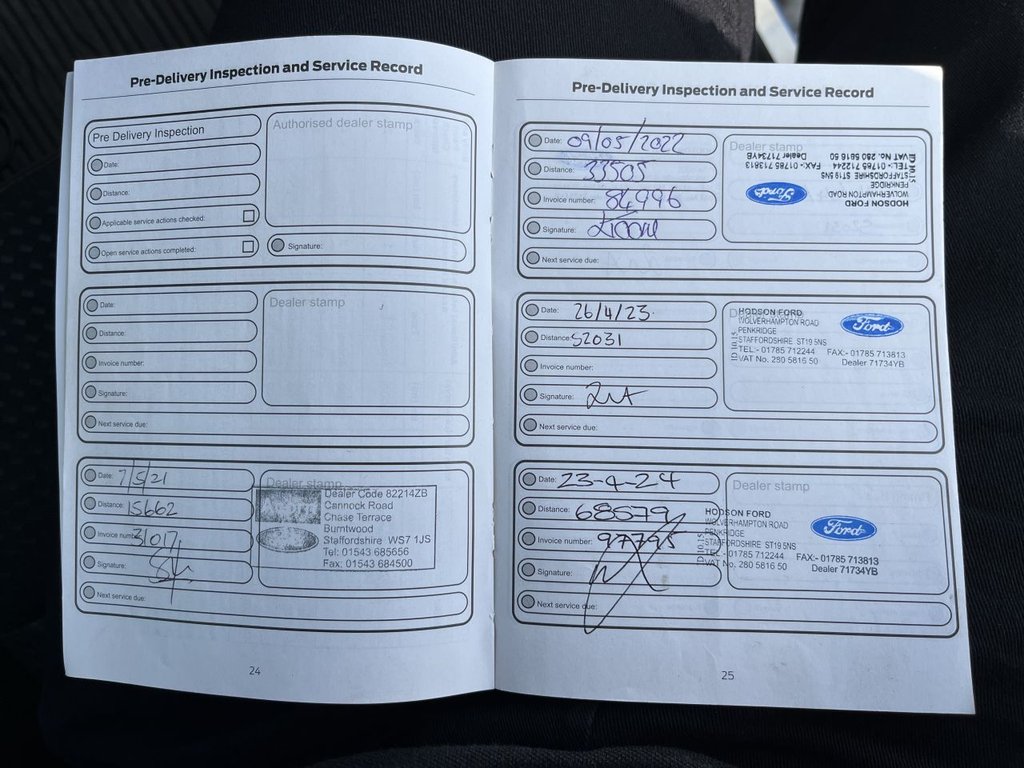 Pre-Delivery Inspection and Service Record
Pre Delivery Inspection
Date:
Distance:
Applicable service actions checked:
Open service actions completed:
Authorised dealer stamp
Signature:
Date:
Distance:
Invoice number:
Signature:
Next service due:
Dealer stamp
Date: 7/5/21
Distance: 15662
Invoice number: 31017
Signature:
Next service due:
Dealer stamp
Dealer Code 82214ZB
Cannock Road
Chase Terrace
Burntwood
Staffordshire WS7 1JS
Tel: 01543 685656
Fax: 01543 684500
24
Pre-Delivery Inspection and Service Record
Date: 09/05/2022
Distance: 33505
Invoice number: 84996
Signature:
Next service due:
Dealer stamp
HODSON FORD
WOLVERHAMPTON ROAD
PENKRIDGE
STAFFORDSHIRE ST19 5NS
TEL:- 01785 712244 FAX:- 01785 713813
VAT No. 280 5816 50 Dealer 71734YB
ID 10.15
Ford
Date: 26/4/23
Distance: 52031
Invoice number:
Signature:
Next service due:
HODSON FORD
WOLVERHAMPTON ROAD
PENKRIDGE
STAFFORDSHIRE ST19 5NS
TEL:- 01785 712244 FAX:- 01785 713813
VAT No. 280 5816 50 Dealer 71734YB
ID 10.15
Ford
Date: 23-4-24
Distance: 68579
Invoice number: 97795
Signature:
Next service due:
Dealer stamp
HODSON FORD
WOLVERHAMPTON ROAD
PENKRIDGE
STAFFORDSHIRE ST19 5NS
TEL:- 01785 712244 FAX:- 01785 713813
VAT No. 280 5816 50 Dealer 71734YB
ID 10.15
Ford
25